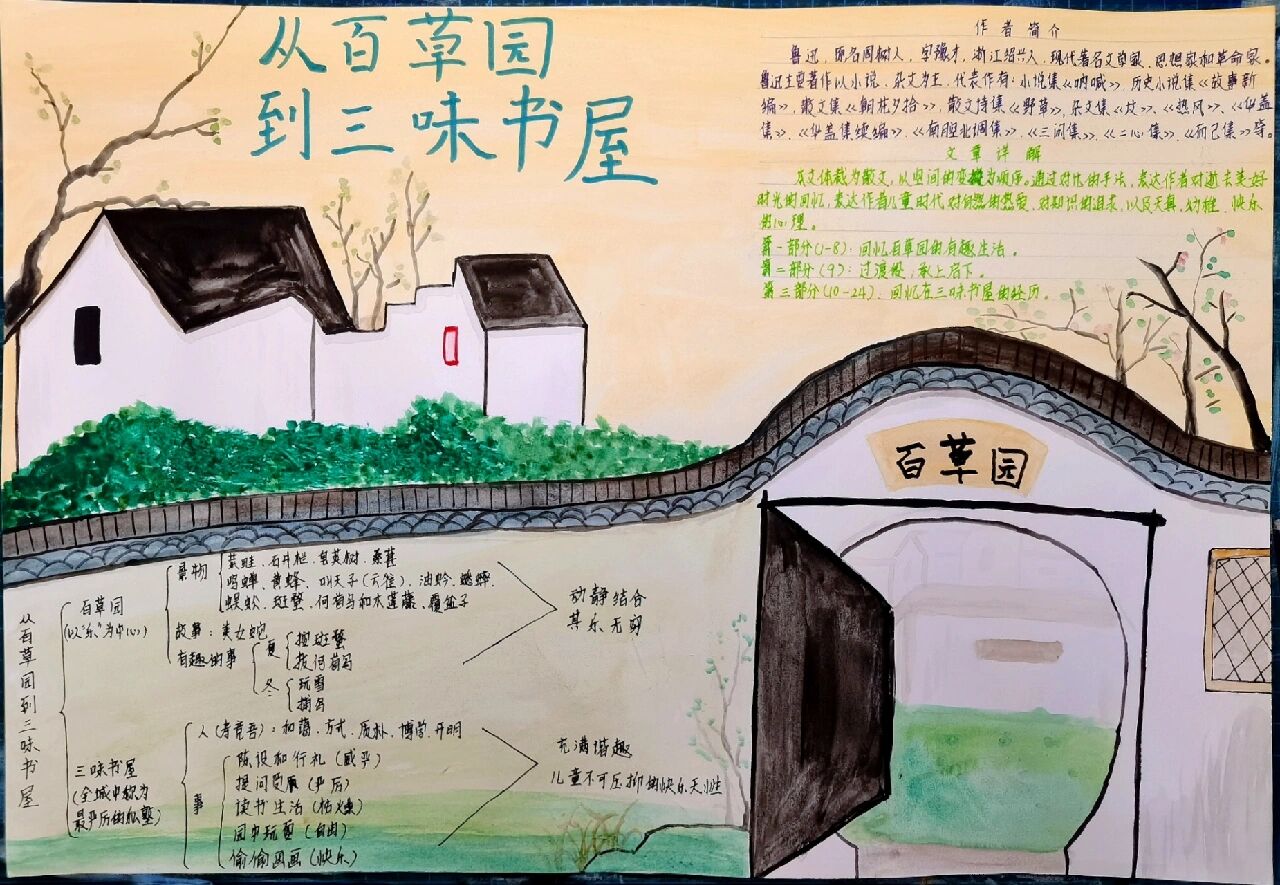 从百草园
到三味书屋
作者简介
鲁迅，原名周树人，字豫才，浙江绍兴人，现代著名文章家、思想家和革命家。
鲁迅主要著作以小说、杂文为主，代表作有：小说集《呐喊》、历史小说集《故事新
编》，散文集《朝花夕拾》，散文诗集《野草》，杂文集《坟》、《热风》、《华盖
集》、《华盖集续编》、《南腔北调集》、《三闲集》、《二心集》、《而已集》等。
文章详解
本文体裁为散文，以空间的变换为顺序。通过对比的手法，表达作者对逝去美好
时光的回忆，表达作者儿童时代对自然的热爱、对知识的追求，以及天真、幼稚、快乐
的心理。
第一部分(1-8)：回忆百草园的有趣生活。
第二部分(9)：过渡段，承上启下。
第三部分(10-24)：回忆在三味书屋的经历。
百草园
从百草园到三味书屋
百草园
(以"乐"为中心)
景物
菜畦、石井栏、皂荚树、桑葚
鸣蝉、黄蜂、叫天子(云雀)、油蛉、蟋蟀
蜈蚣、斑蝥、何首乌和木莲藤、覆盆子
故事：美女蛇
有趣的事
夏
捉斑蝥
找何首乌
冬
玩雪
捕鸟
动静结合
其乐无穷
三味书屋
(全城中称为
最严厉的私塾)
人(寿镜吾)：和蔼、方正、质朴、博学、开明
事
陈设和行礼(威严)
提问(严厉)
读书生活(枯燥)
园中玩耍(自由)
偷偷画画(快乐)
充满谐趣
儿童不可压抑的快乐天性